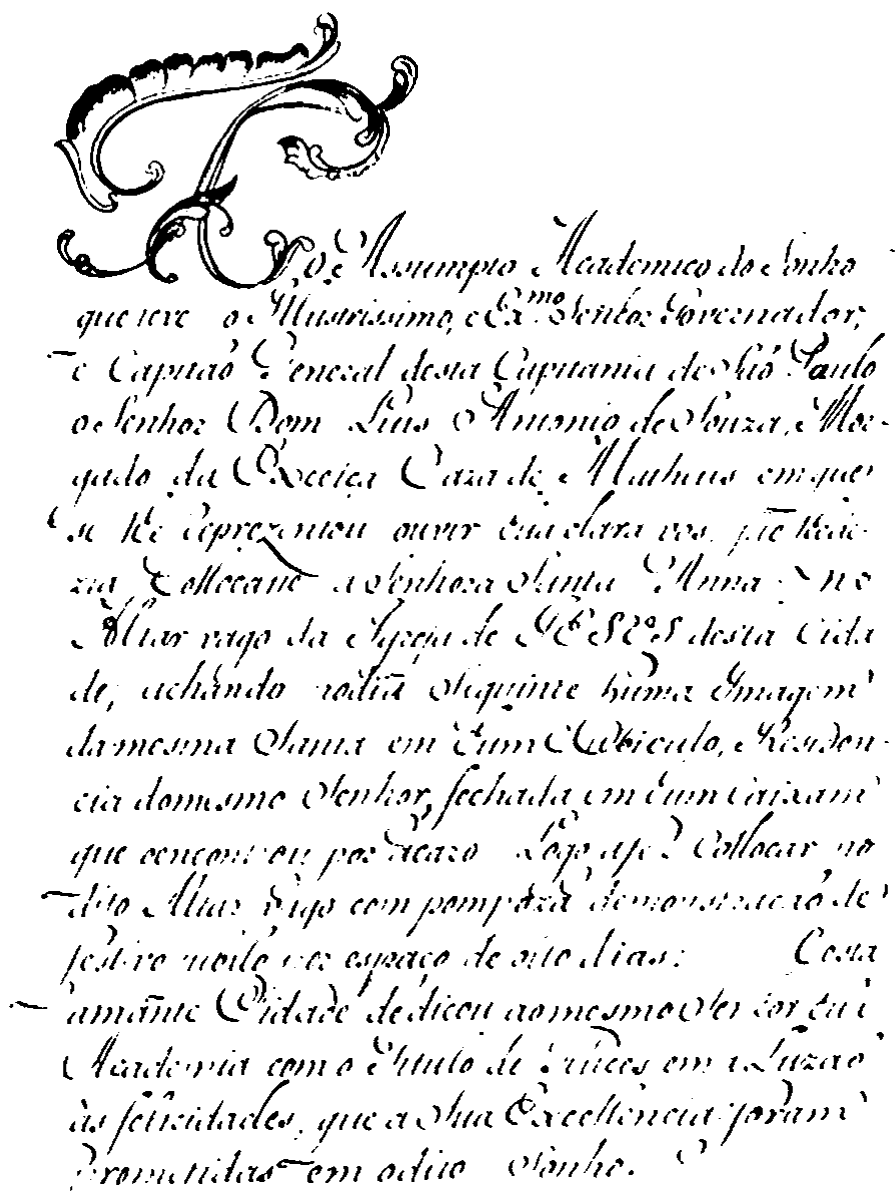 o Assumpto Academico do Sonho
que teve o Illustrissimo, e Ex.mo Senhor Governador,
e Capitaõ General desta Capitania de Saõ Paulo
o Senhor Dom Luis Antonio de Souza, Mor-
gado da Caza de Matheus em que
se lhe reprezentou ouvir hũa clara vos, que lhe de-
zia, Collocase a Senhora Santa Anna no
Altar vago da Igreja de JESUS desta Cida
de, achando no dia Seguinte huma Imagem
da mesma Santa em hum Cubiculo, Residen-
cia do mesmo Senhor, fechada em hum caixam
que encontrou por acazo Logo a fes Collocar no
dito Altar vago com pompoza demonstraçaõ de
festivo por espaço de oito dias: Esta
amante Cidade dedicou ao mesmo Senhor hũa
Academia com o Titulo de felices em
às felicidades, que a Sua Excellencia foram
prometidas em o dito Sonho.